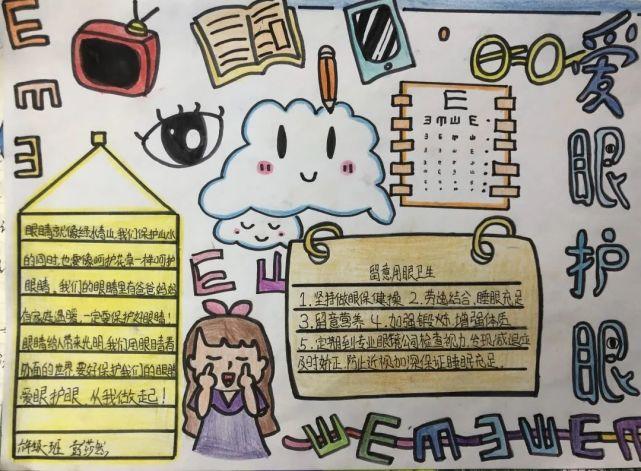 爱眼护眼
E
E m E
留意用眼卫生
1.坚持做眼保健操 2.劳逸结合,睡眠充足
3.留意营养 4.加强锻炼,增强体质
5.定期到专业眼镜公司检查视力,发现
及时矫正,防止近视加深保证睡眠充足.
眼睛就像绿水青山,我们保护山水
的同时,也要像呵护花草一样呵护
眼睛,我们的眼睛里有爸爸妈妈
有家庭温暖,一定要保护好眼睛!
眼睛给人带来光明,我们用眼睛看
外面的世界,要好保护我们的眼睛
爱眼护眼,从我做起!